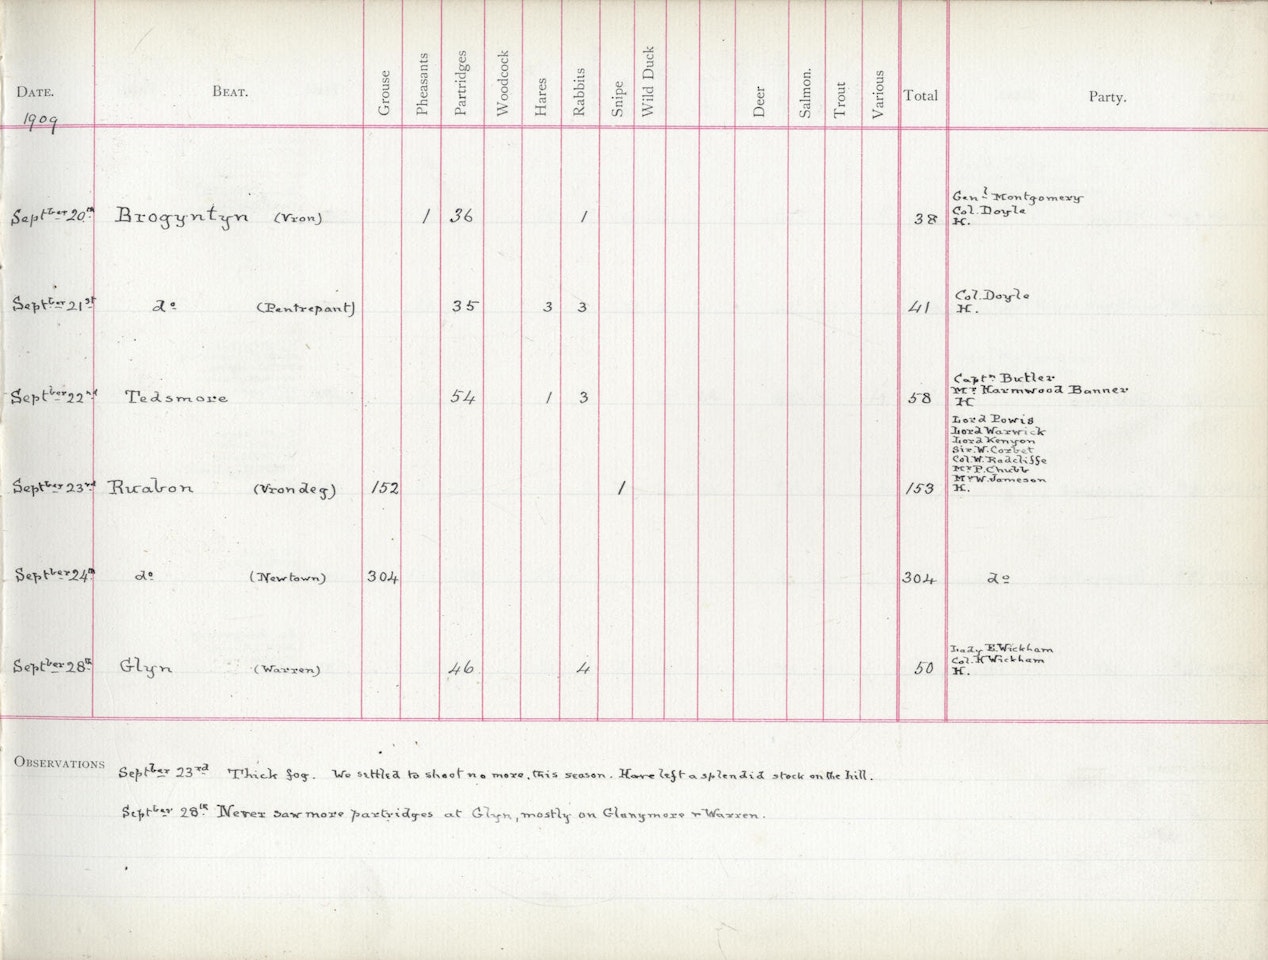 DATE. BEAT. Grouse Pheasants Partridges Woodcock Hares Rabbits Snipe Wild Duck Deer Salmon. Trout Various Total Party.
1909
Septber 20th Brogyntyn (Vron) 1 36 1 38 Genl Montgomery
Col. Doyle
H.
Septber 21st do (Pentrepant) 35 3 3 41 Col. Doyle
H.
Septber 22nd Tedsmore 54 1 3 58 Captn Butler
Mr Harmwood Banner
H
Lord Powis
Lord Warwick
Lord Kenyon
Sir. W. Corbet
Col. W. Radcliffe
Mr P. Chubb
Mr W. Jameson
Septber 23rd Ruabon (Vrondeg) 152 1 153 H.
Septber 24th do (Newtown) 304 304 do
Septber 28th Glyn (Warren) 46 4 50 Lady E. Wickham
Col. Wickham
H.
OBSERVATIONS Septber 23rd Thick fog. We settled to shoot no more, this season. Have left a splendid stock on the hill.
Septber 28th Never saw more partridges at Glyn, mostly on Glanymore & Warren.